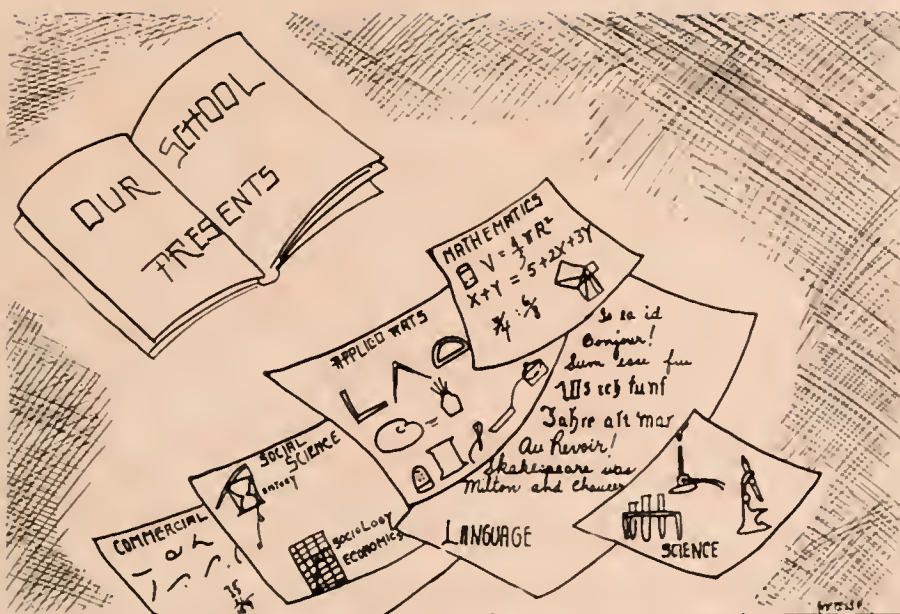 OUR SCHOOL
PRESENTS
MATHEMATICS
V = 4/3 π R²
X+Y = 5+2X+3Y
APPLIED ARTS
Is ea id
Bonjour!
Sum esse fui
Als ich funf
Jahre alt war
Au Revoir!
Shakespeare was
Milton and Chaucer
LANGUAGE
SOCIAL
SCIENCE
SOCIOLOGY
ECONOMICS
COMMERCIAL
SCIENCE